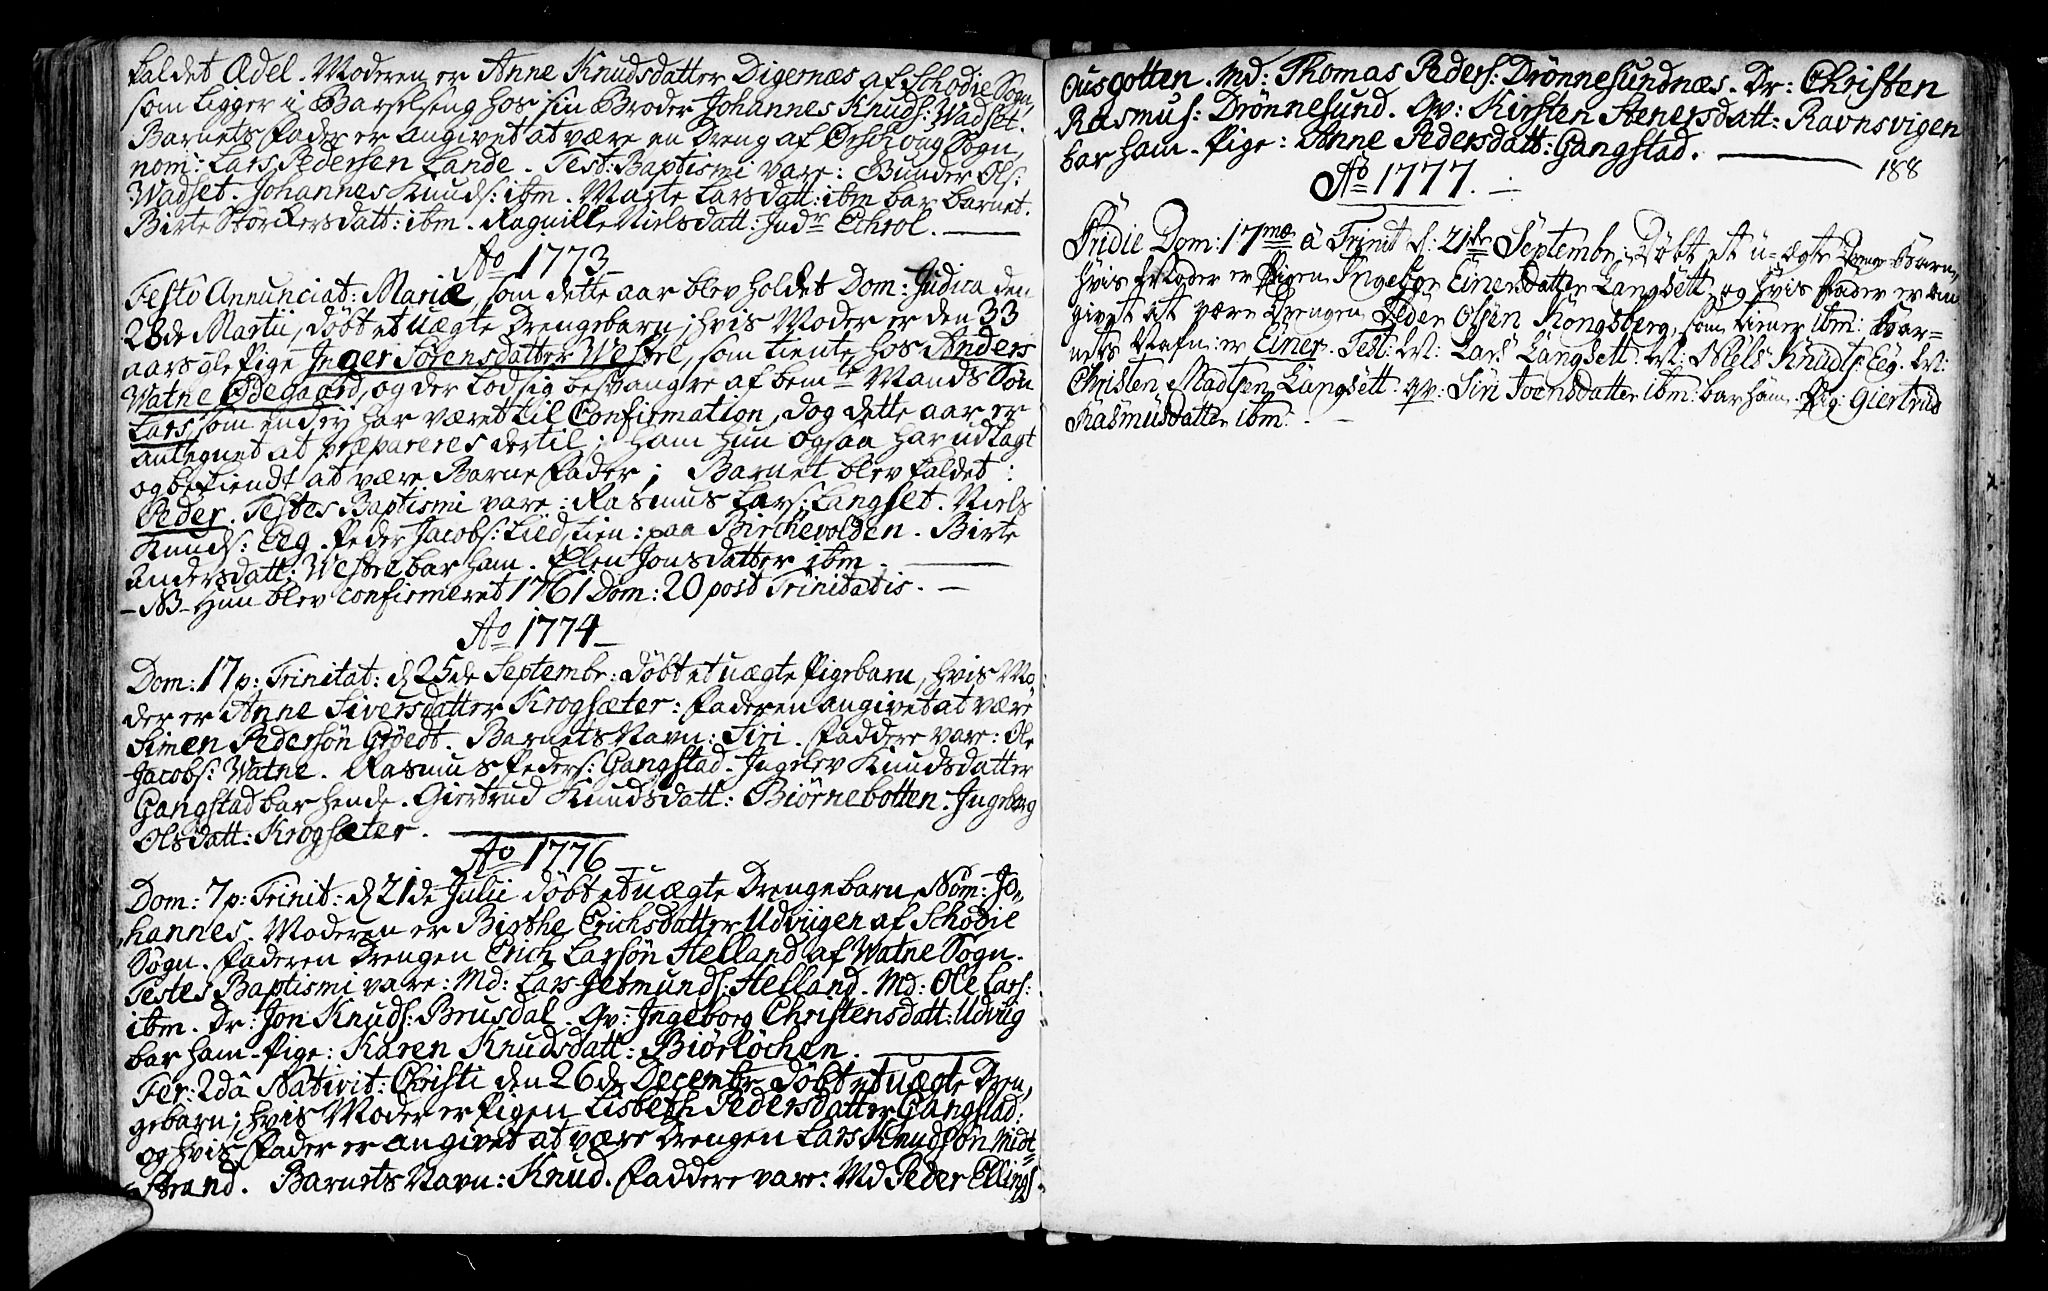 kaldet Ædel. Moderen er Anne Knudsdatter Digernæs af Schodie Sogn,
som ligger i Barselseng hos sin Broder Johannes Knuds: Wadset.
Barnets Fader er angivet at være en Dreng af Ørschoug Sogn,
nom: Lars Pedersen Lande. Test: Baptismi vare: Gunder Ols:
Wadset. Johannes Knuds: ibm. Marte Larsdatt: ibm bar barnet.
Birte Storckersdatt: ibm. Ragnille Nielsdatt: Indr Echrol.
Ao 1773
Festo Annunciat: Mariæ, som dette aar blev holdet Dom: Judica den
28de Martii, döbt et uægte Drengebarn; hvis Moder er den 33
aars gle Pige Inger Sörensdatter Westre, som tiente hos Anders
Watne Ødegaard, og der lod sig besvangre af bemte Mands Søn
Lars som end ej har været til Confirmation, dog dette aar er
antegnet at præpareres dertil; ham hun ogsaa har udlagt
og bekiendt at være Barne Fader; Barnet blev kaldet:
Peder. Testes Baptismi vare: Rasmus Lars: Langset. Niels
Knuds: Eeg. Peder Jacobs: Lied, tien: paa Birchevolden. Birte
Andersdatt: Westre bar ham. Elen Jonsdatter ibm.
- NB - Hun blev confirmeret 1761 Dom: 20 post Trinitatis.
Ao 1774
Dom: 17 p: Trinitat: d 25de Septembr: döbt et uægte Pigebarn, hvis Mo-
der er Anne Siversdatter Krogsæter: Faderen angivet at være
Simen Pedersön Gröedt. Barnets Navn: Siri. Faddere vare: Ole
Jacobs: Watne. Rasmus Peders: Gangstad. Ingelev Knudsdatter
Gangstad bar hende. Giertrud Knudsdatt: Biörnebotten. Ingeborg
Olsdatt: Krogsæter.
Ao 1776
Dom: 7 p: Trinit: d 21de Julii döbt et uægte Drengebarn, Nom: Jo-
hannes. Moderen er Birthe Erichsdatter Udviigen af Schodie
Sogn. Faderen Drengen Erich Larsön Helland af Watne Sogn.
Testes Baptismi vare: Md: Lars Jetmunds: Helland. Md: Ole Lars:
ibm. Dr: Jon Knuds: Brusdal. Qv: Ingeborg Christensdatt: Udviig
bar ham. Pige: Karen Knudsdatt: Biørløchen.
Fer: 2dâ Nativit: Christi den 26de Decembr döbt et uægte Dren-
gebarn; hvis Moder er Pigen Lisbeth Pedersdatter Gangstad:
og hvis Fader er angivet at være Drengen Lars Knudsön Midt-
strand. Barnets Navn: Knud. Faddere vare: Md Peder Ellings:
Ousgotten. Md: Thomas Peders: Drönnesundnæs. Dr: Christen
Rasmus: Drönnesund. Qv: Kirsten Stenersdatt: Ravnsvigen
bar ham. Pige: Anne Pedersdatt: Gangstad.
188
Ao 1777.
Dom: 17mæ â Trinit d: 21de Septembr: Döbt et u-ægte Drenge Barn,
hvis Moder er Pigen Ingebor Einersdatter Langsett, og hvis Fader er an
givet at være Drengen Peder Olsen Kongsberg, som tiener ibm: Bar-
nets Nafn: er Einer. Test: M: Lars Langsett. M: Niels Knuds: Eeg. M:
Christen Madtsen Langsett. qv: Siri Joensdatter ibm: bar ham. Pig: Giertrud
Rasmusdatter ibm.